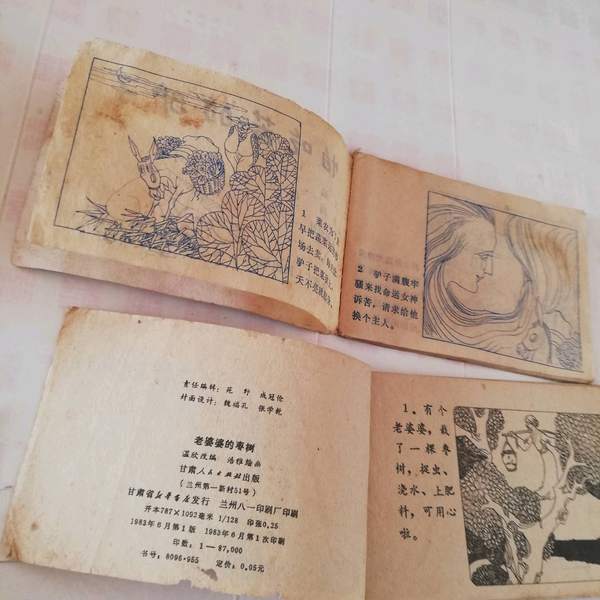 1 菜农为了
早把蔬菜
场去卖，
驴子把
天不亮就
2 驴子满腹牢
骚来找命运女神
诉苦，请求给他
换个主人。
责任编辑：苑 野 成冠伦
封面设计：魏福孔 张学乾
老婆婆的枣树
温欣改编 浩雅绘画
甘肃人民出版社出版
（兰州第一新村51号）
甘肃省新华书店发行 兰州八一印刷厂印刷
开本787×1092毫米 1/128 印张0.25
1983年6月第1版 1983年6月第1次印刷
印数：1—87,000
书号：8096·955 定价：0.05元
1．有个
老婆婆，栽
了一棵枣
树，捉虫、
浇水、上肥
料，可用心
啦。